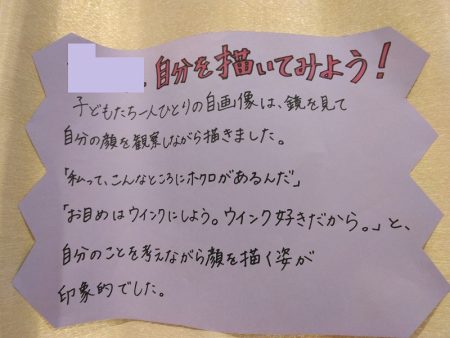 自分を描いてみよう!
子どもたち一人ひとりの自画像は、鏡を見て
自分の顔を観察しながら描きました。
「私って、こんなところにホクロがあるんだ」
「お目めはウインクにしよう。ウインク好きだから。」と、
自分のことを考えながら顔を描く姿が
印象的でした。